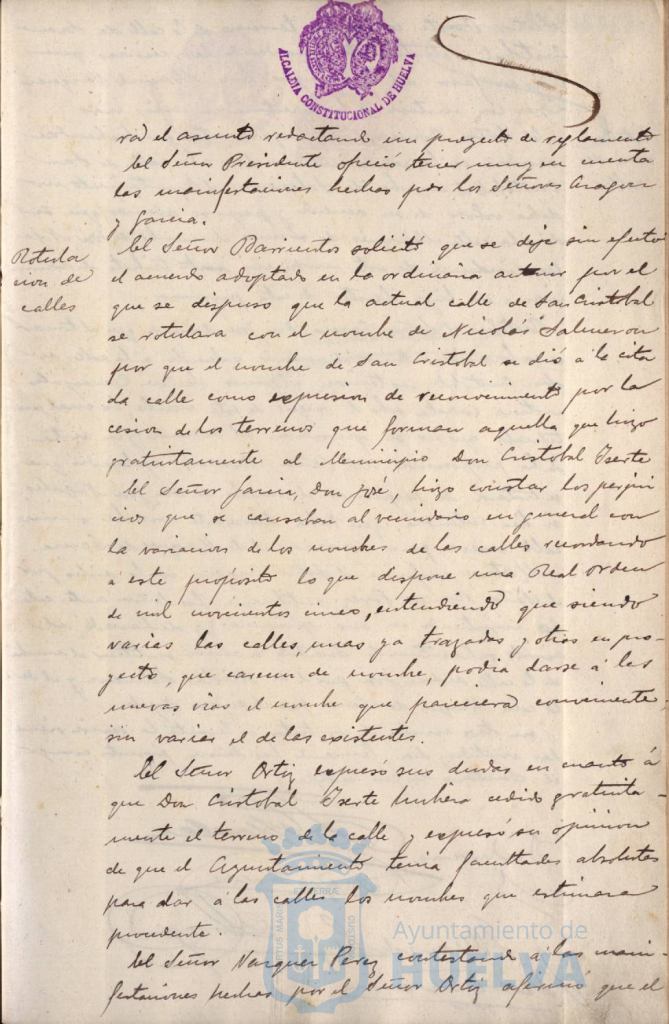 ALCALDIA CONSTITUCIONAL DE HUELVA
rá el asunto redactando un proyecto de reglamento
El Señor Presidente ofreció tener muy en cuenta
las manifestaciones hechas por los Señores Aragon
y Garcia.
Rotula
cion de
calles
El Señor Barrientos solicitó que se deje sin efecto
el acuerdo adoptado en la ordinaria anterior por el
que se dispuso que la actual calle de San Cristobal
se rotulara con el nombre de Nicolás Salmeron
por que el nombre de San Cristobal se dió á la cita
da calle como expresion de reconocimiento por la
cesion de los terrenos que forman aquella que hizo
gratuitamente al Municipio Don Cristobal
El Señor Garcia, Don José, hizo constar los perjui
cios que se causaban al vecindario en general con
la variacion de los nombres de las calles recordando
á este proposito lo que dispone una Real orden
de mil novecientos cinco, entendiendo que siendo
varias las calles, unas ya trazadas y otras en pro-
yecto, que carecen de nombre, podia darse á las
nuevas vias el nombre que pareciera conveniente
sin variar el de las existentes.
El Señor Ortiz expresó sus dudas en cuanto á
que Don Cristobal hubiera cedido gratuita-
mente el terreno de la calle y expresó su opinion
de que el Ayuntamiento tenia facultades absolutas
para dar á las calles los nombres que estimara
procedente.
El Señor Vazquez Perez contestando á las mani-
festaciones hechas por el Señor Ortiz afirmó que el
Ayuntamiento de
HUELVA